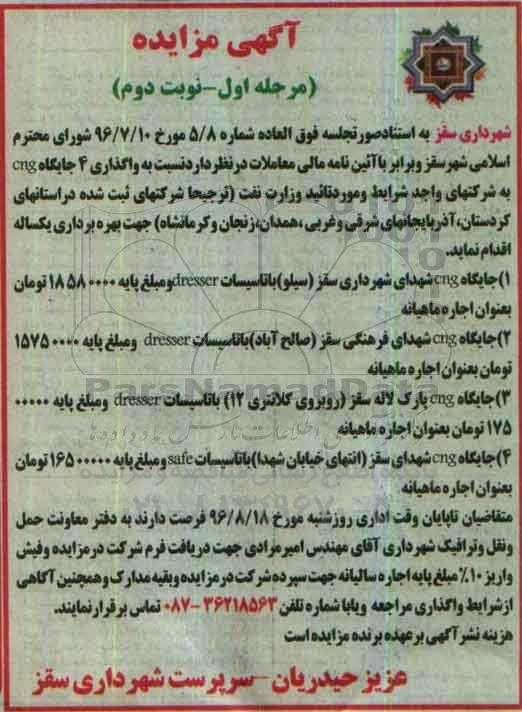 آگهی مزایده
(مرحله اول-نوبت دوم)
شهرداری سقز به استنادصورتجلسه فوق العاده شماره ۵/۸ مورخ ۹۶/۷/۱۰ شورای محترم
اسلامی شهر سقز وبرابر باآئین نامه مالی معاملات درنظرداردنسبت به واگذاری ۴ جایگاه cng
به شرکتهای واجد شرایط وموردتائید وزارت نفت (ترجیحا شرکتهای ثبت شده دراستانهای
کردستان،آذربایجانهای شرقی وغربی ،همدان،زنجان وکرمانشاه) جهت بهره برداری یکساله
اقدام نماید.
۱)جایگاه cng شهدای شهرداری سقز (سیلو)باتاسیسات dresser ومبلغ پایه ۱۸۵۸۰۰۰۰ تومان
بعنوان اجاره ماهیانه
۲)جایگاه cng شهدای فرهنگی سقز (صالح آباد)باتاسیسات dresser ومبلغ پایه ۱۵۷۵۰۰۰۰
تومان بعنوان اجاره ماهیانه
۳)جایگاه cng پارک لاله سقز (روبروی کلانتری ۱۲) باتاسیسات dresser ومبلغ پایه ۰۰۰۰۰
۱۷۵ تومان بعنوان اجاره ماهیانه
۴)جایگاه cng شهدای سقز (انتهای خیابان شهدا)باتاسیسات safe ومبلغ پایه ۱۶۵۰۰۰۰۰ تومان
بعنوان اجاره ماهیانه
متقاضیان تاپایان وقت اداری روزشنبه مورخ ۹۶/۸/۱۸ فرصت دارند به دفتر معاونت حمل
ونقل وترافیک شهرداری آقای مهندس امیرمرادی جهت دریافت فرم شرکت درمزایده وفیش
واریز ۱۰٪ مبلغ پایه اجاره سالیانه جهت سپرده شرکت درمزایده وبقیه مدارک وهمچنین آگاهی
ازشرایط واگذاری مراجعه ویابا شماره تلفن ۳۶۲۱۸۵۶۳-۰۸۷ تماس برقرارنمایند.
هزینه نشرآگهی برعهده برنده مزایده است
عزیز حیدریان -سرپرست شهرداری سقز
ParsNamadData